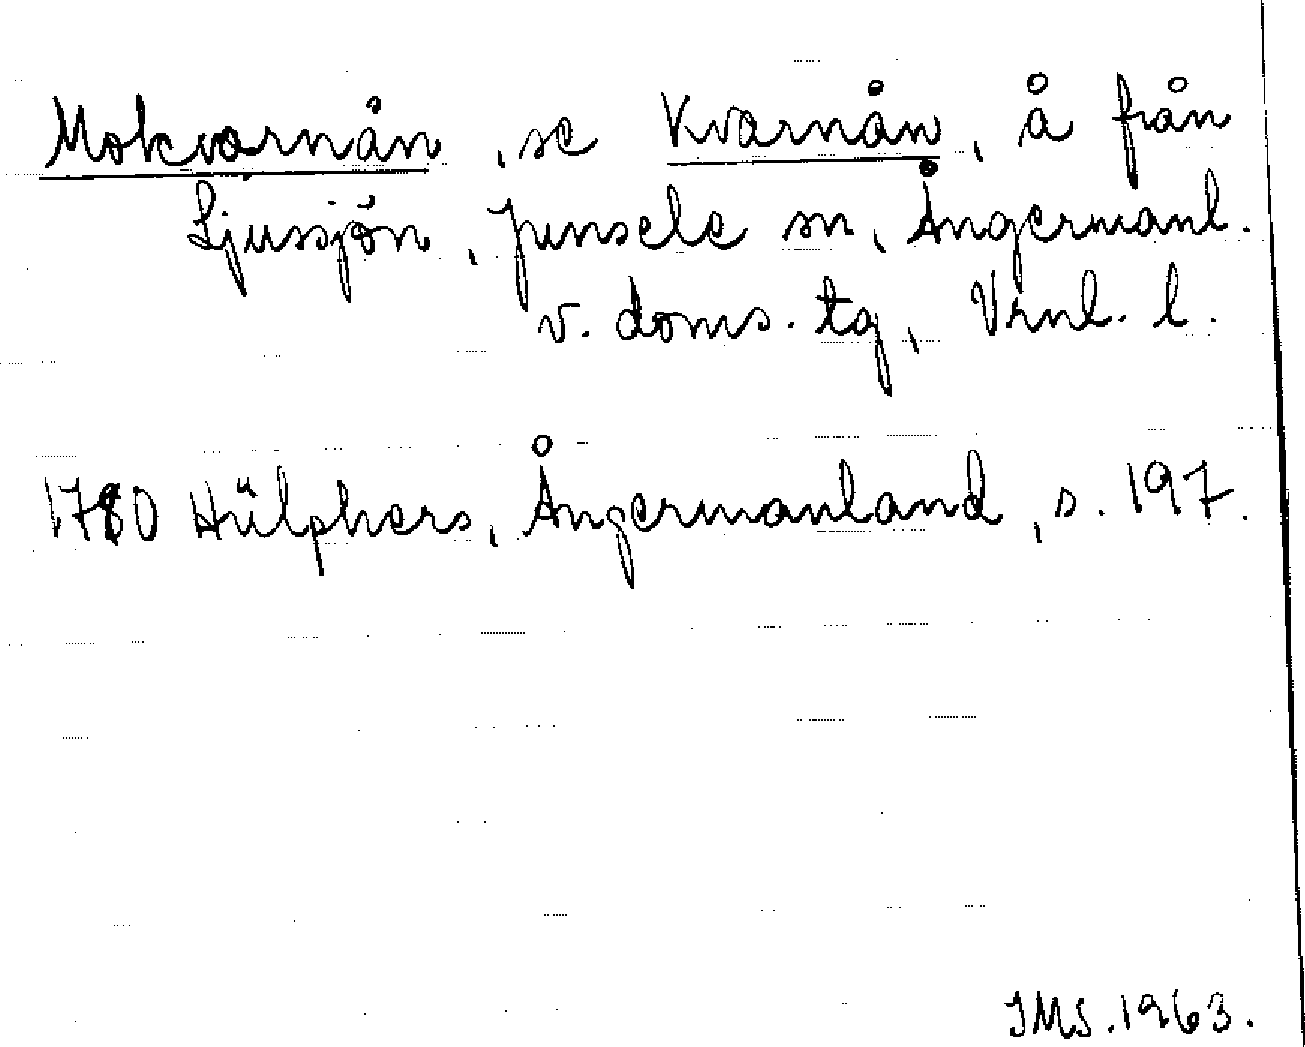 Mokvarnån, se Kvarnån, å från
Ljussjön, Junsele sn, Ångermanl.
v. doms. tg, Vrnl. l.
1780 Hülphers, Ångermanland, s. 197.
JMS. 1963.